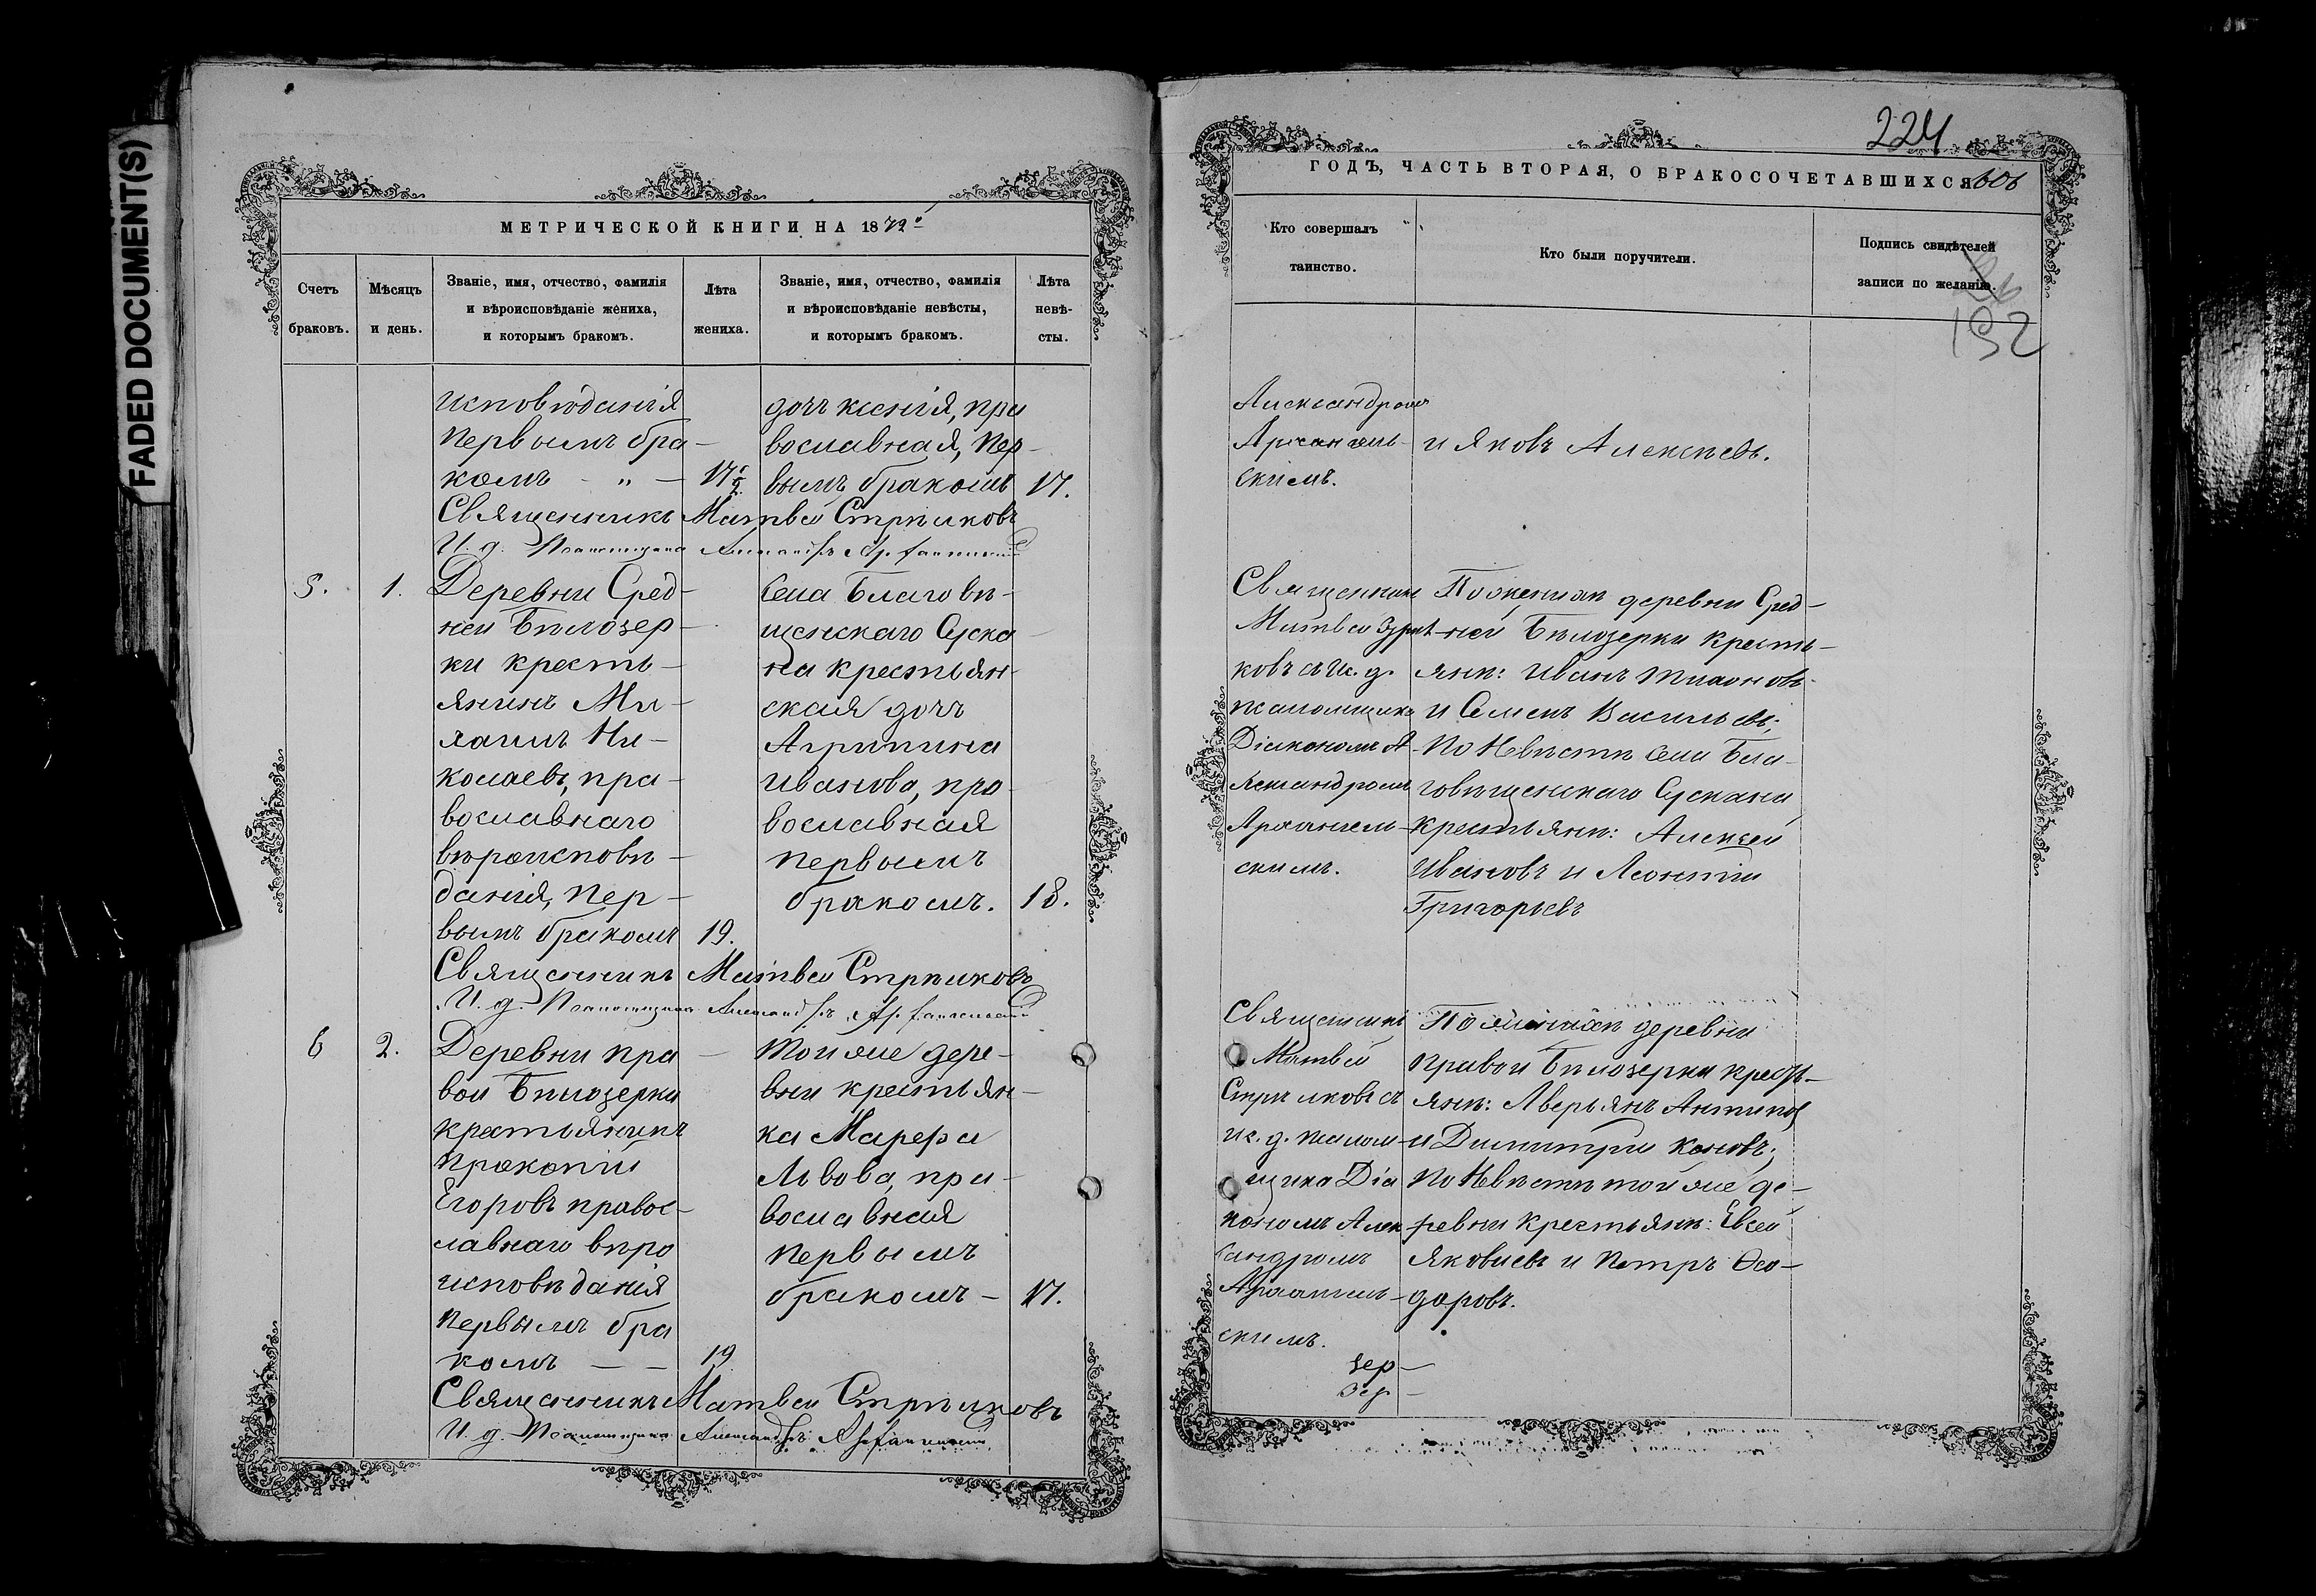 FADED DOCUMENT(S)
МЕТРИЧЕСКОЙ КНИГИ НА 1872
Счетъ браковъ.
Мѣсяцъ и день.
Званіе, имя, отчество, фамилія
и вѣроисповѣданіе жениха,
и которымъ бракомъ.
Лѣта жениха.
Званіе, имя, отчество, фамилія
и вѣроисповѣданіе невѣсты,
и которымъ бракомъ.
Лѣта невѣ-
сты.
исповѣданія
первымъ бра-
комъ - „ - 17 1/2
дочь
вославная, пер-
вымъ бракомъ 17.
Священникъ Матвей Стрѣлковъ
И. д. Псаломщика Александръ Архангельскій
5. 1.
Деревни Сред-
ней Бѣлозер-
ки кресть-
янинъ Ми-
хаилъ Ни-
колаевъ, пра-
вославнаго
вѣроисповѣ-
данія, пер-
вымъ бракомъ 19.
Села Благовѣ-
щенскаго Суска-
на крестьян-
ская дочь
Агрипина
Иванова, пра-
вославная
первымъ
бракомъ. 18.
Священникъ Матвей Стрѣлковъ
И. д. Псаломщика Александръ Архангельскій
6 2.
Деревни пра-
вой Бѣлозерки
крестьянинъ
Прокопій
Егоровъ правос-
лавнаго вѣро
исповѣданія
первымъ бра
комъ — — 19
Той же дере-
вни крестьян-
ка Марѳа
Львова, пра-
вославная
первымъ
бракомъ - 17.
Священникъ Матвей Стрѣлковъ
И. д. Псаломщика Александръ Архангельскій
224
ГОДЪ, ЧАСТЬ ВТОРАЯ, О БРАКОСОЧЕТАВШИХСЯ
606
Кто совершалъ
таинство.
Кто были поручители.
Подпись свидѣтелей
записи по желанію.
152
Александромъ
Архангель-
скимъ.
и Яковъ Алексѣевъ.
Священникъ
Матвей Стрѣл-
ковъ съ и. д.
псаломщика
Діакономъ А-
лександромъ
Архангель-
скимъ.
По женихѣ деревни Сред-
ней Бѣлозерки кресть-
янѣ: Иванъ Тихоновъ
и Семенъ Васильевъ;
По Невѣстѣ села Бла-
говѣщенскаго Сускана
крестьяне: Алексѣй
Ивановъ и Леонтій
Григорьевъ
Священникъ
Матвей
Стрѣлковъ съ
и. д. псалом-
щика Діа
кономъ Алек
сандромъ
Архангель-
скимъ.
По женихѣ деревни
правой Бѣлозерки кресть-
яне: Аверьянъ Антипов
и Димитрій Коновъ;
По Невѣстѣ той же де-
ревни крестьяне: Евсей
Яковлевъ и Петръ Ѳео-
доровъ.
зер-
зер-